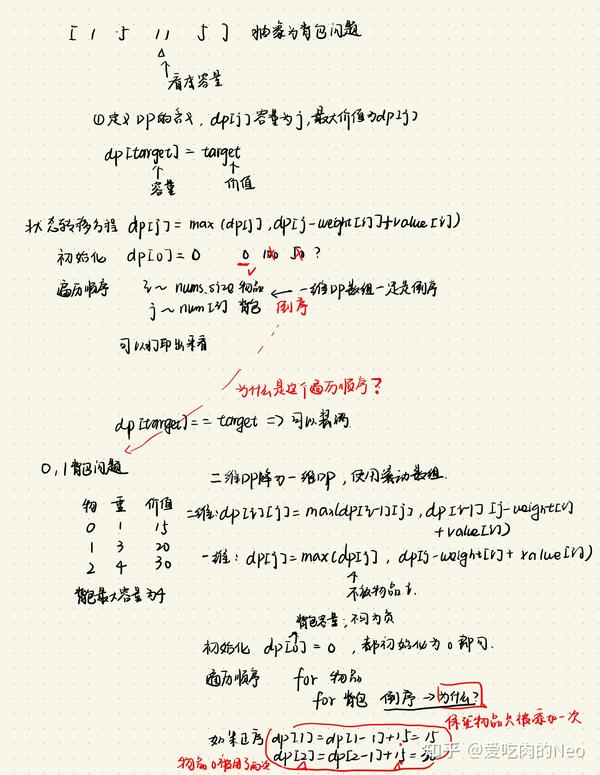 [ 1 5 11 5 ] 抽象为背包问题
看成容量
①定义DP的含义, dp[j]容量为j,最大价值为dp[j]
dp[target] = target
容量 价值
状态转移方程 dp[j] = max(dp[j], dp[j-weight[i]]+value[i])
初始化 dp[0] = 0 0 100 50 ?
遍历顺序 i ~ nums.size 物品 ← 一维DP数组一定是倒序
j ~ num[i] 背包 倒序
可以打印出来看
为什么是这个遍历顺序?
dp[target] == target => 可以装满
0,1背包问题
二维DP降为一维DP, 使用滚动数组.
物 重 价值
0 1 15
1 3 20
2 4 30
背包最大容量为4
二维: dp[i][j] = max(dp[i-1][j], dp[i-1][j-weight[i]
+value[i])
一维: dp[j] = max(dp[j], dp[j-weight[i]+value[i])
不放物品i.
背包容量,不可为负
初始化 dp[0] = 0 , 都初始化为0即可.
遍历顺序 for 物品
for 背包 倒序 → 为什么?
保证物品只被添加一次
如果正序 dp[1] = dp[1-1]+15 = 15
dp[2] = dp[2-1]+15 = 30
物品0被用了两次
知乎 @爱吃肉的Neo